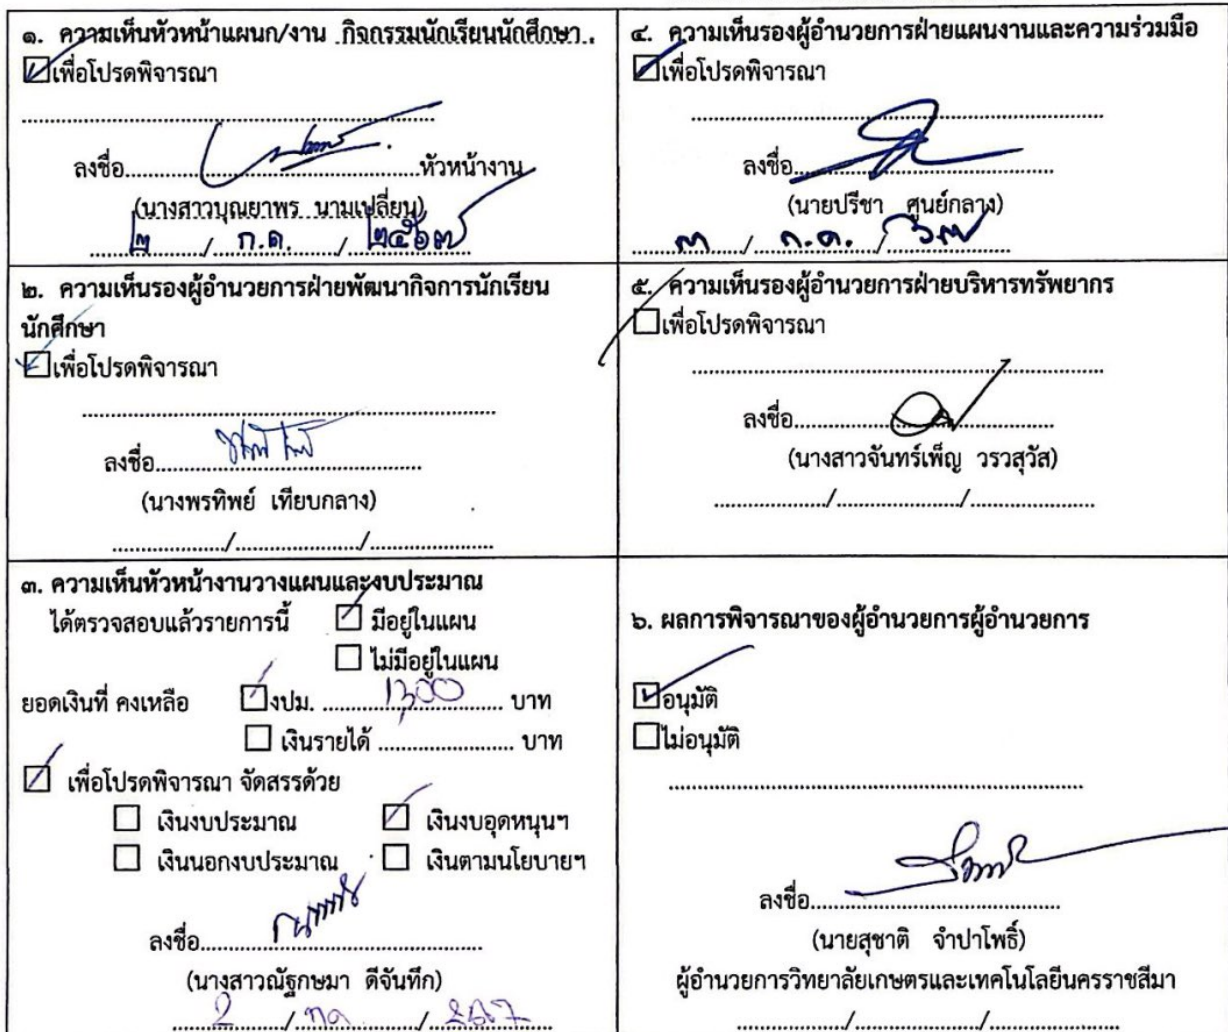 ๑. ความเห็นหัวหน้าแผนก/งาน .กิจกรรมนักเรียนนักศึกษา.
เพื่อโปรดพิจารณา
ลงชื่อ..................หัวหน้างาน
(นางสาวบุณยาพร นามเปลี่ยน)
๒ / ก.ค. / ๒๕๖๗
๒. ความเห็นรองผู้อำนวยการฝ่ายพัฒนากิจการนักเรียน
นักศึกษา
เพื่อโปรดพิจารณา
ลงชื่อ..................
(นางพรทิพย์ เทียบกลาง)
............/............/............
๓. ความเห็นหัวหน้างานวางแผนและงบประมาณ
ได้ตรวจสอบแล้วรายการนี้ มีอยู่ในแผน
ไม่มีอยู่ในแผน
ยอดเงินที่ คงเหลือ งปม. 1,300 บาท
เงินรายได้ .................. บาท
เพื่อโปรดพิจารณา จัดสรรด้วย
เงินงบประมาณ เงินงบอุดหนุนฯ
เงินนอกงบประมาณ เงินตามนโยบายฯ
ลงชื่อ..................
(นางสาวณัฐกษมา ดีจันทึก)
2 / กค / 2567
๔. ความเห็นรองผู้อำนวยการฝ่ายแผนงานและความร่วมมือ
เพื่อโปรดพิจารณา
ลงชื่อ..................
(นายปรีชา ศูนย์กลาง)
๓ / ก.ค. / ๖๗
๕. ความเห็นรองผู้อำนวยการฝ่ายบริหารทรัพยากร
เพื่อโปรดพิจารณา
ลงชื่อ..................
(นางสาวจันทร์เพ็ญ วรวสุวัส)
............/............/............
๖. ผลการพิจารณาของผู้อำนวยการผู้อำนวยการ
อนุมัติ
ไม่อนุมัติ
ลงชื่อ..................
(นายสุชาติ จำปาโพธิ์)
ผู้อำนวยการวิทยาลัยเกษตรและเทคโนโลยีนครราชสีมา
............/............/............